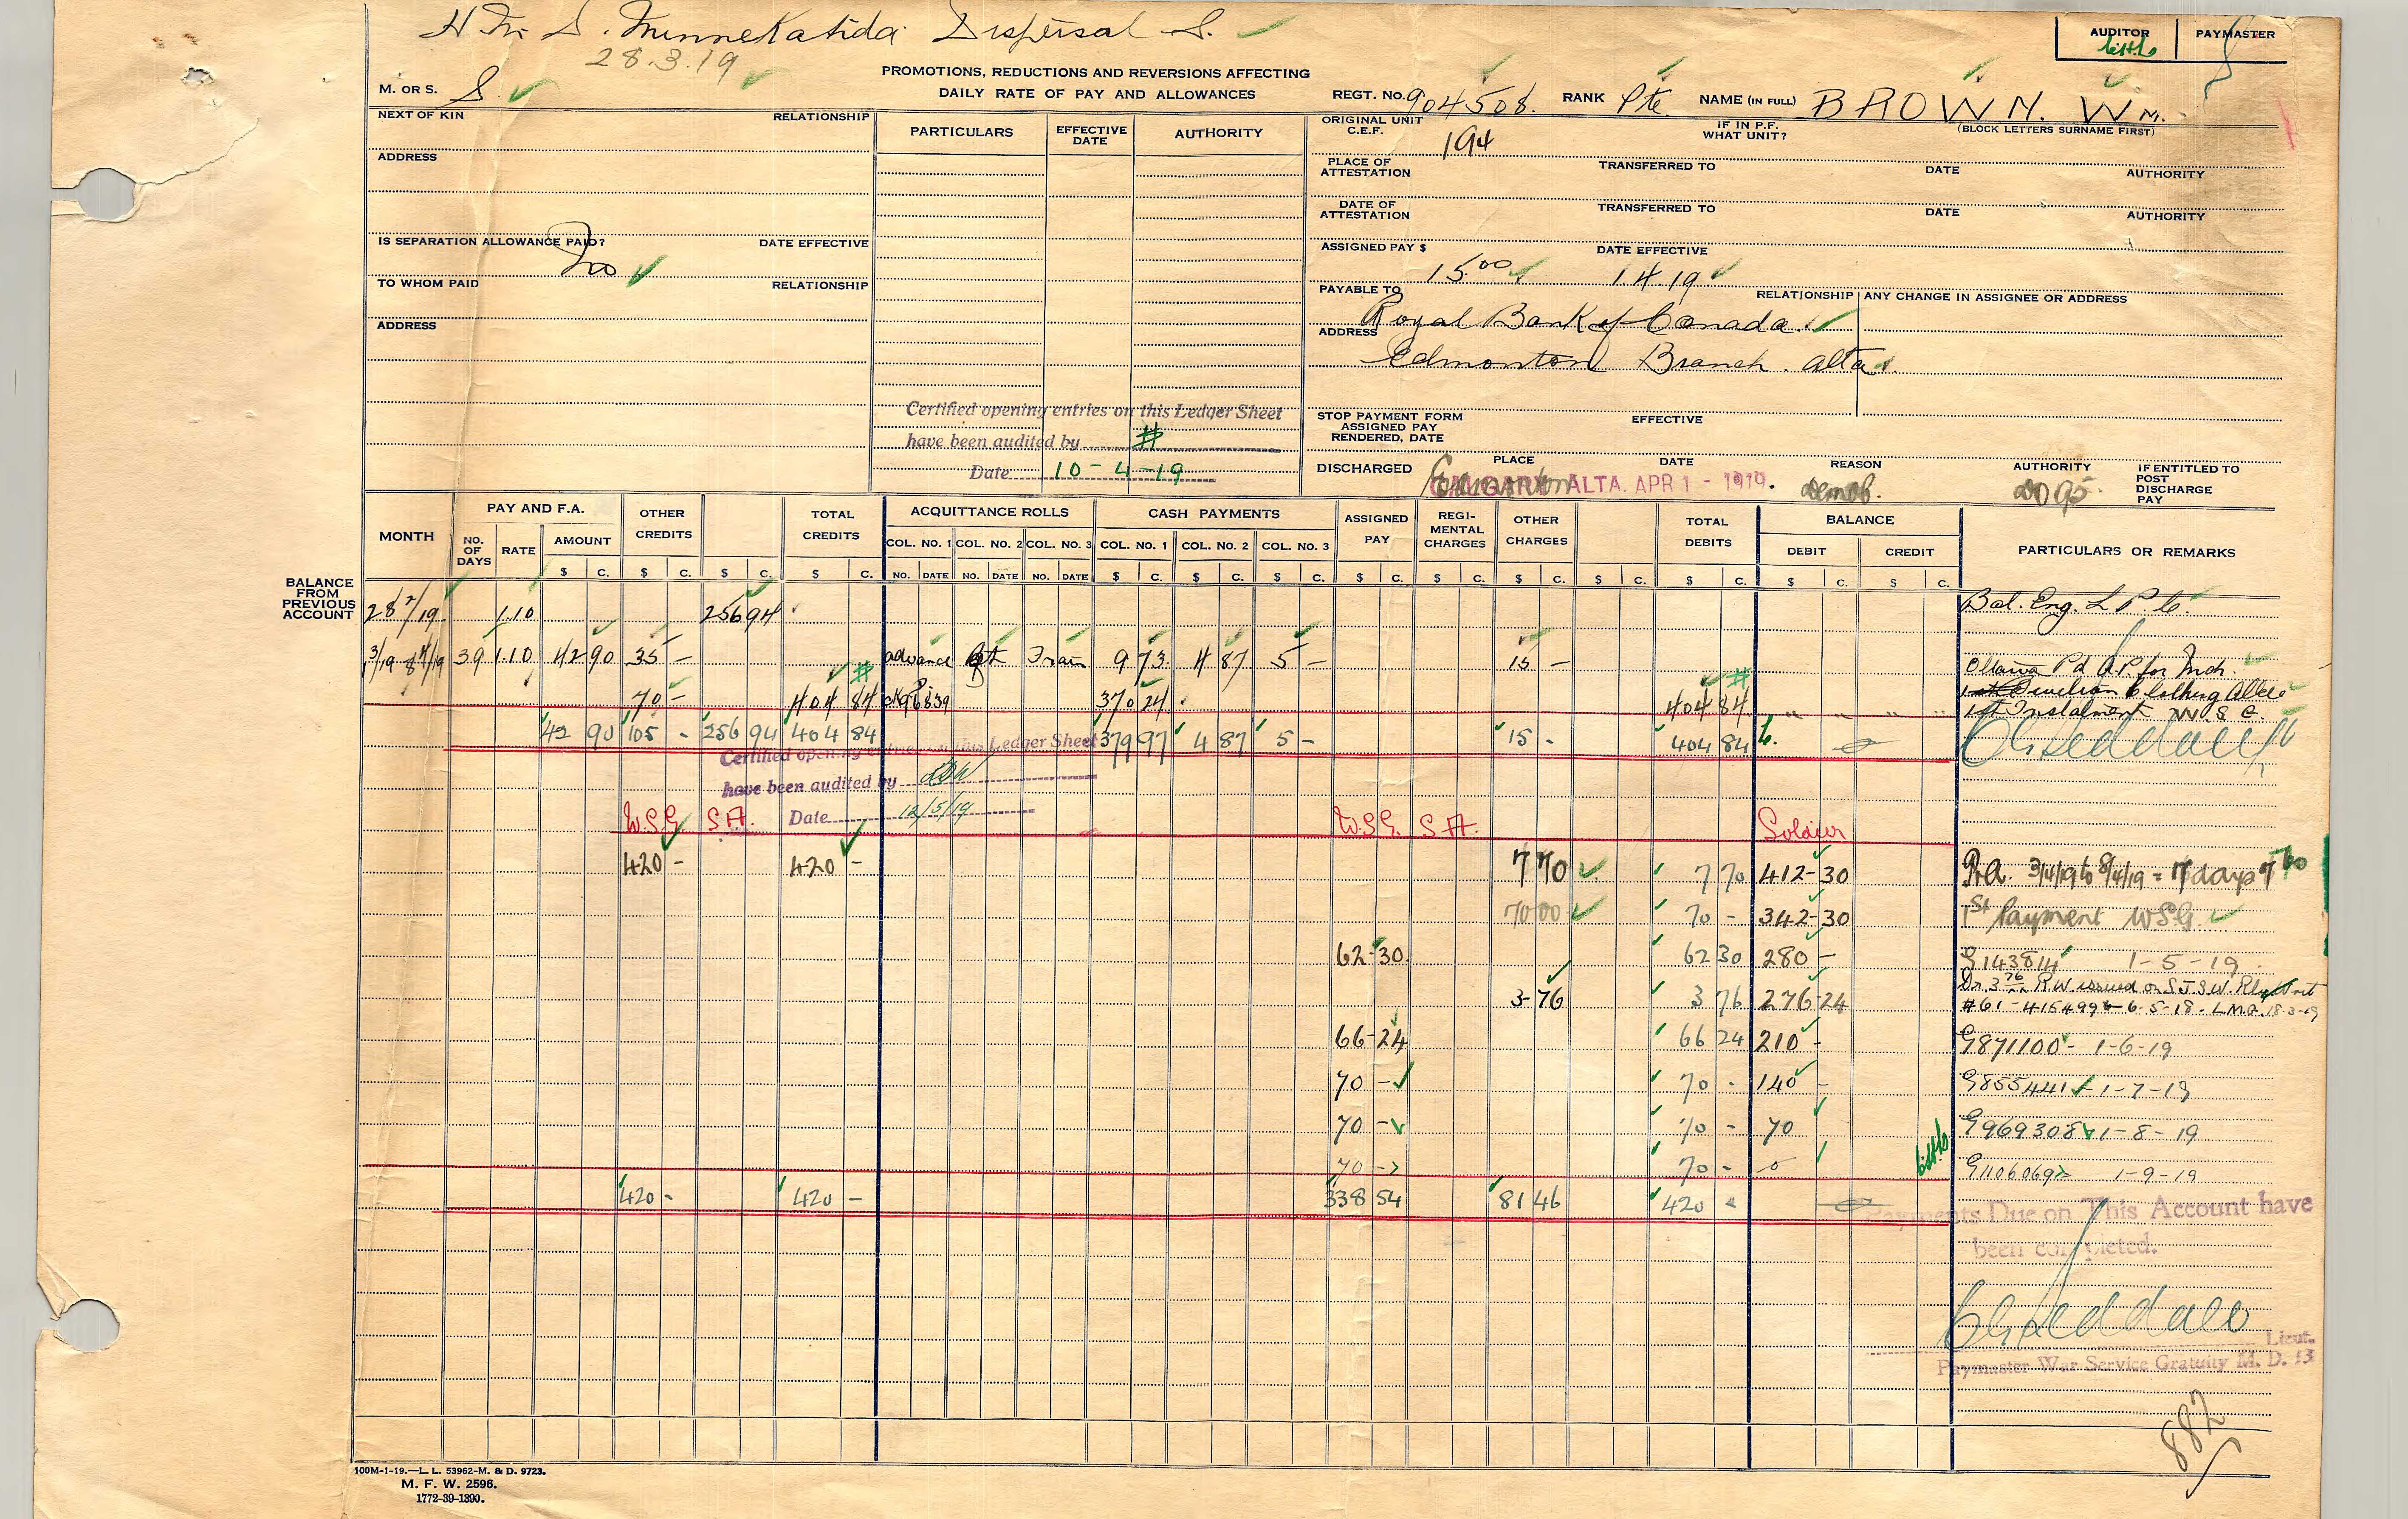 H.M.S. Minnekahda Dispersal S.
28.3.19
AUDITOR PAYMASTER
M. OR S. S.
PROMOTIONS, REDUCTIONS AND REVERSIONS AFFECTING
DAILY RATE OF PAY AND ALLOWANCES
REGT. No. 904508. RANK Pte NAME (IN FULL) BROWN. Wm.
(BLOCK LETTERS SURNAME FIRST)
NEXT OF KIN RELATIONSHIP
ADDRESS
IS SEPARATION ALLOWANCE PAID? DATE EFFECTIVE
No
TO WHOM PAID RELATIONSHIP
ADDRESS
PARTICULARS EFFECTIVE DATE AUTHORITY
Certified opening entries on this Ledger Sheet
have been audited by
Date 10-4-19
ORIGINAL UNIT C.E.F. 194 IF IN P.F. WHAT UNIT?
PLACE OF ATTESTATION TRANSFERRED TO DATE AUTHORITY
DATE OF ATTESTATION TRANSFERRED TO DATE AUTHORITY
ASSIGNED PAY $ 15.00 DATE EFFECTIVE 1.4.19
PAYABLE TO RELATIONSHIP ANY CHANGE IN ASSIGNEE OR ADDRESS
Royal Bank of Canada
ADDRESS
Edmonton Branch. Alta.
STOP PAYMENT FORM ASSIGNED PAY RENDERED, DATE EFFECTIVE
DISCHARGED PLACE DATE REASON AUTHORITY IF ENTITLED TO POST DISCHARGE PAY
Edmonton CALGARY ALTA. APR 1 - 1919. Demob. DO 95.
MONTH PAY AND F.A. OTHER CREDITS TOTAL CREDITS ACQUITTANCE ROLLS CASH PAYMENTS ASSIGNED PAY REGIMENTAL CHARGES OTHER CHARGES TOTAL DEBITS BALANCE PARTICULARS OR REMARKS
NO. OF DAYS RATE AMOUNT COL. NO. 1 COL. NO. 2 COL. NO. 3 COL. NO. 1 COL. NO. 2 COL. NO. 3 DEBIT CREDIT
$ C. $ C. $ C. $ C. NO. DATE NO. DATE NO. DATE $ C. $ C. $ C. $ C. $ C. $ C. $ C. $ C. $ C. $ C.
BALANCE FROM PREVIOUS ACCOUNT
28/2/19 1.10 256 94 Bal. Eng. L.P.C.
1/3/19 - 8/4/19 39 1.10 42 90 35 - advance Bt Train 9 73 4 87 5 - 15 - Ottawa Pd A.P. for Mch
70 - 404 84 370 24 404 84 Civilian Clothing Allce
1st Instalment W.S.G.
42 90 105 - 256 94 404 84 379 97 4 87 5 - 15 - 404 84
Certified opening entries on this Ledger Sheet
have been audited by
Date 12/5/19
W.S.G. S.A. W.S.G. S.A. Soldier
420 - 420 - 7 70 7 70 412-30 P.A. 3/4/19 to 8/4/19 = 7 days 7 70
70 00 70 - 342-30 1st Payment WSG
62-30 62 30 280 - G143814 1-5-19
3-76 3 76 276-24 Dr 3 76 R.W. issued on S.J.S.W. Rly Wnt
#61-415499 6-5-18. L.M.A. 18-3-19
66-24 66 24 210 - G871100 - 1-6-19
70 - 70 - 140 - G855441 - 1-7-19
70 - 70 - 70 G969308 1-8-19
70 - 70 - 0 G1106069 1-9-19
420 - 420 - 338 54 81 46 420
Payments Due on This Account have
been completed.
Lieut.
Paymaster War Service Gratuity M. D. 13
882
100M-1-19.—L. L. 53962-M. & D. 9723.
M. F. W. 2596.
1772-39-1390.